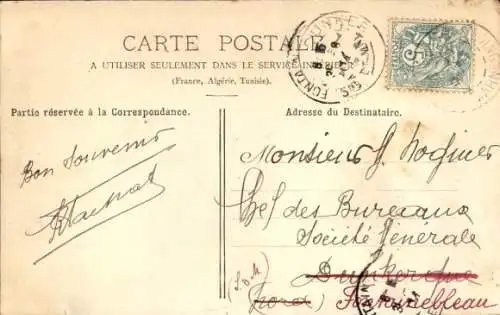 CARTE POSTALE
A UTILISER SEULEMENT DANS LE SERVICE INTÉRIEUR
(France, Algérie, Tunisie).
Partie réservée à la Correspondance.
Adresse du Destinataire.
Bon Souvenir
Monsieur
Chef des Bureaux
Société Générale
Dunkerque
(Nord) Fontainebleau
(S. & M.)